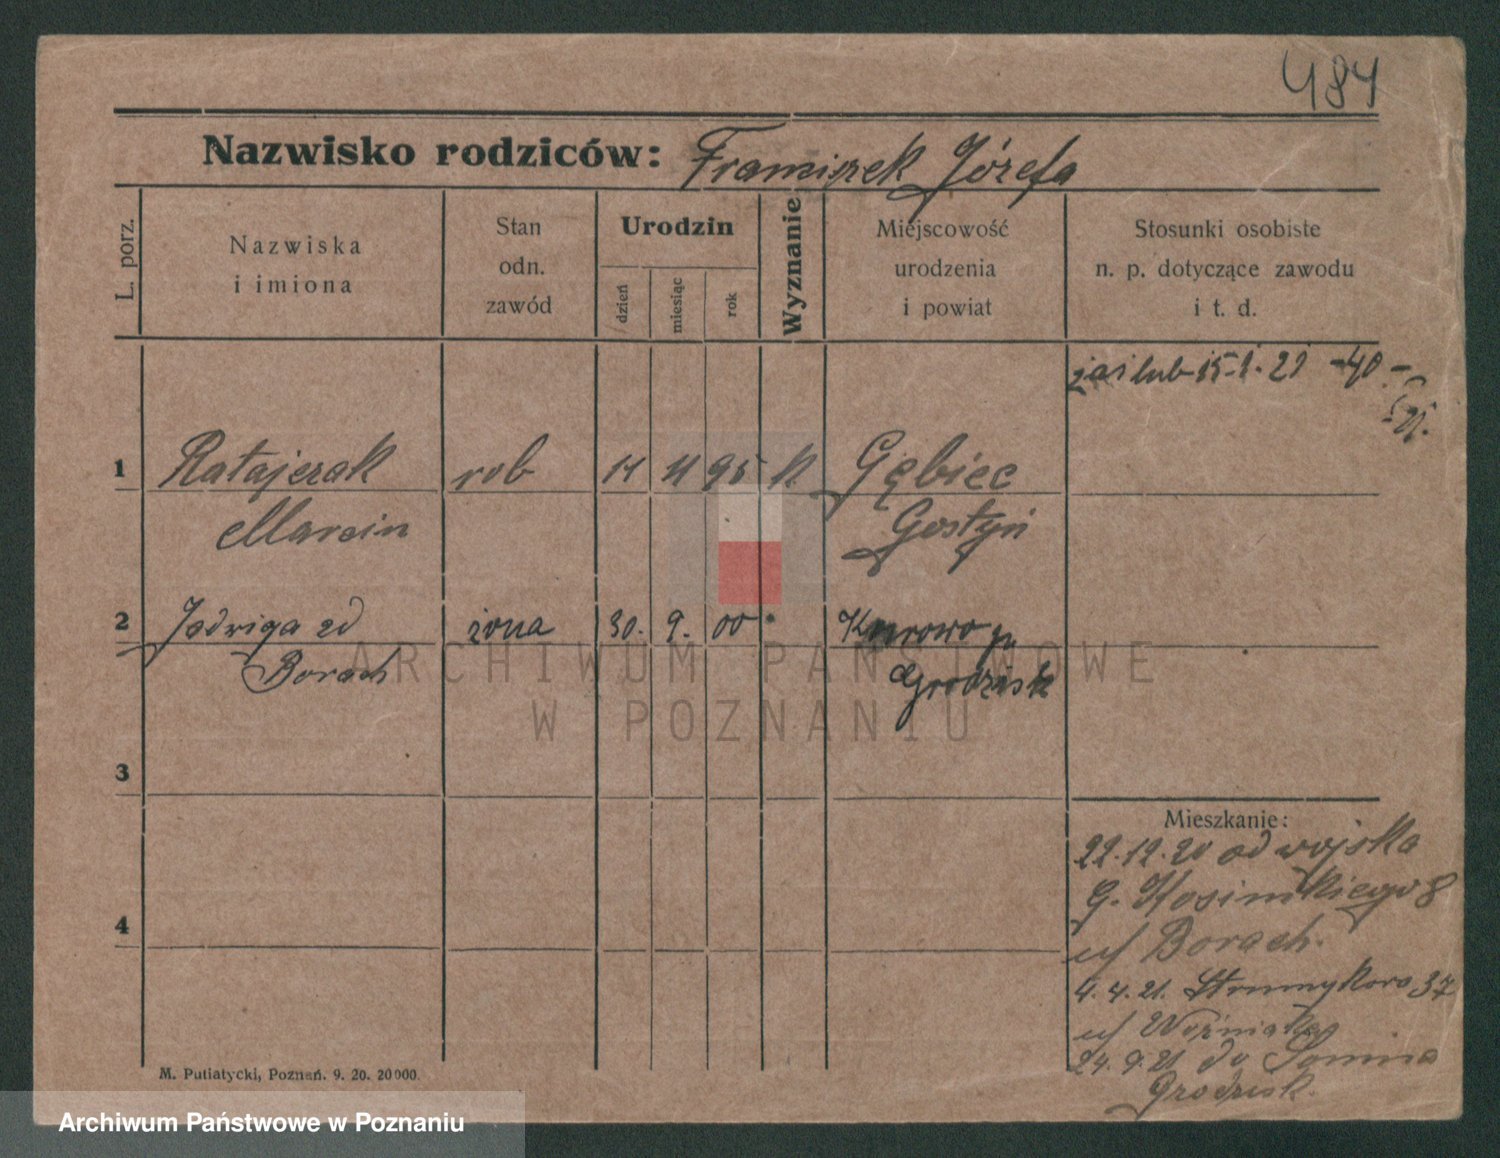 484
Nazwisko rodziców: Franciszek Józefa
L. porz.
Nazwiska
i imiona
Stan
odn.
zawód
Urodzin
dzień
miesiąc
rok
Wyznanie
Miejscowość
urodzenia
i powiat
Stosunki osobiste
n. p. dotyczące zawodu
i t. d.
zaślub 15-1-21 -40-
21.
1 Ratajczak rob 11 95 k Gębice
Marcin Gostyń
2 Jadwiga zd żona 30. 9. 00
Borach Grodzisk
3
4
Mieszkanie:
22.12.20 od wojska
G. 8
u/ Borach.
4.4.21. Strumykowa 37
u/ Woźniaka
24.9.21 do
Grodzisk.
M. Putiatycki, Poznań. 9. 20. 20000.
ARCHIWUM PAŃSTWOWE
W POZNANIU
Archiwum Państwowe w Poznaniu